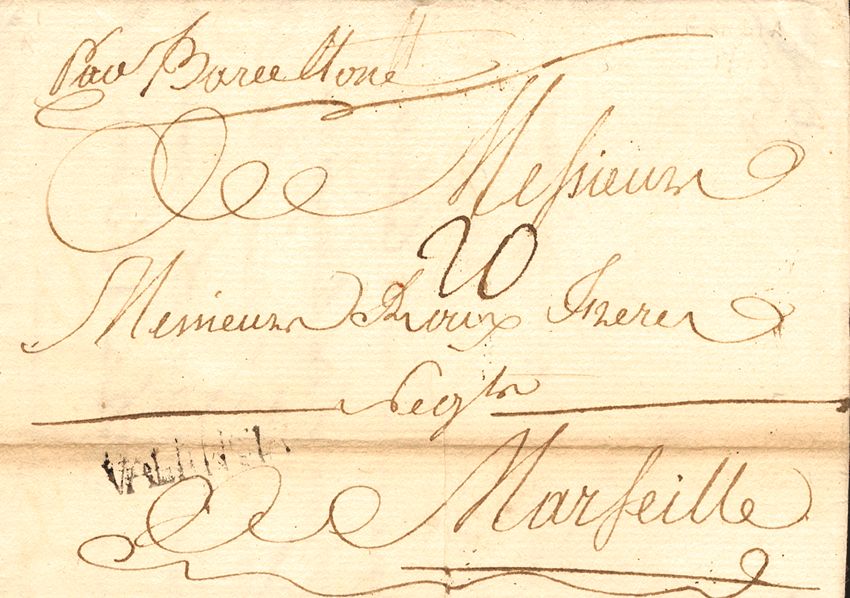 Par Barcellone
A Messieurs
20
Messieurs Roux Freres
Negts
A Marseille